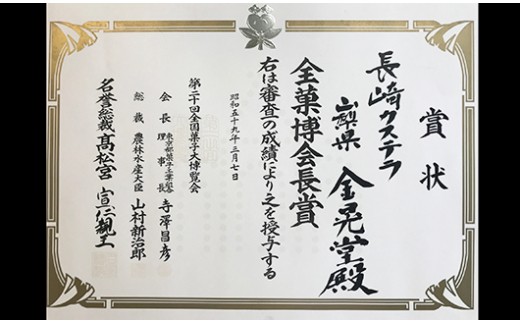 賞状
長崎カステラ
山梨県 金晃堂殿
全菓博会長賞
右は審査の成績により之を授与する
昭和五十九年三月七日
第二十回全国菓子大博覧会
会長 東京都菓子工業組合理事長 寺澤昌彦
総裁 農林水産大臣 山村新治郎
名誉総裁 高松宮 宣仁親王